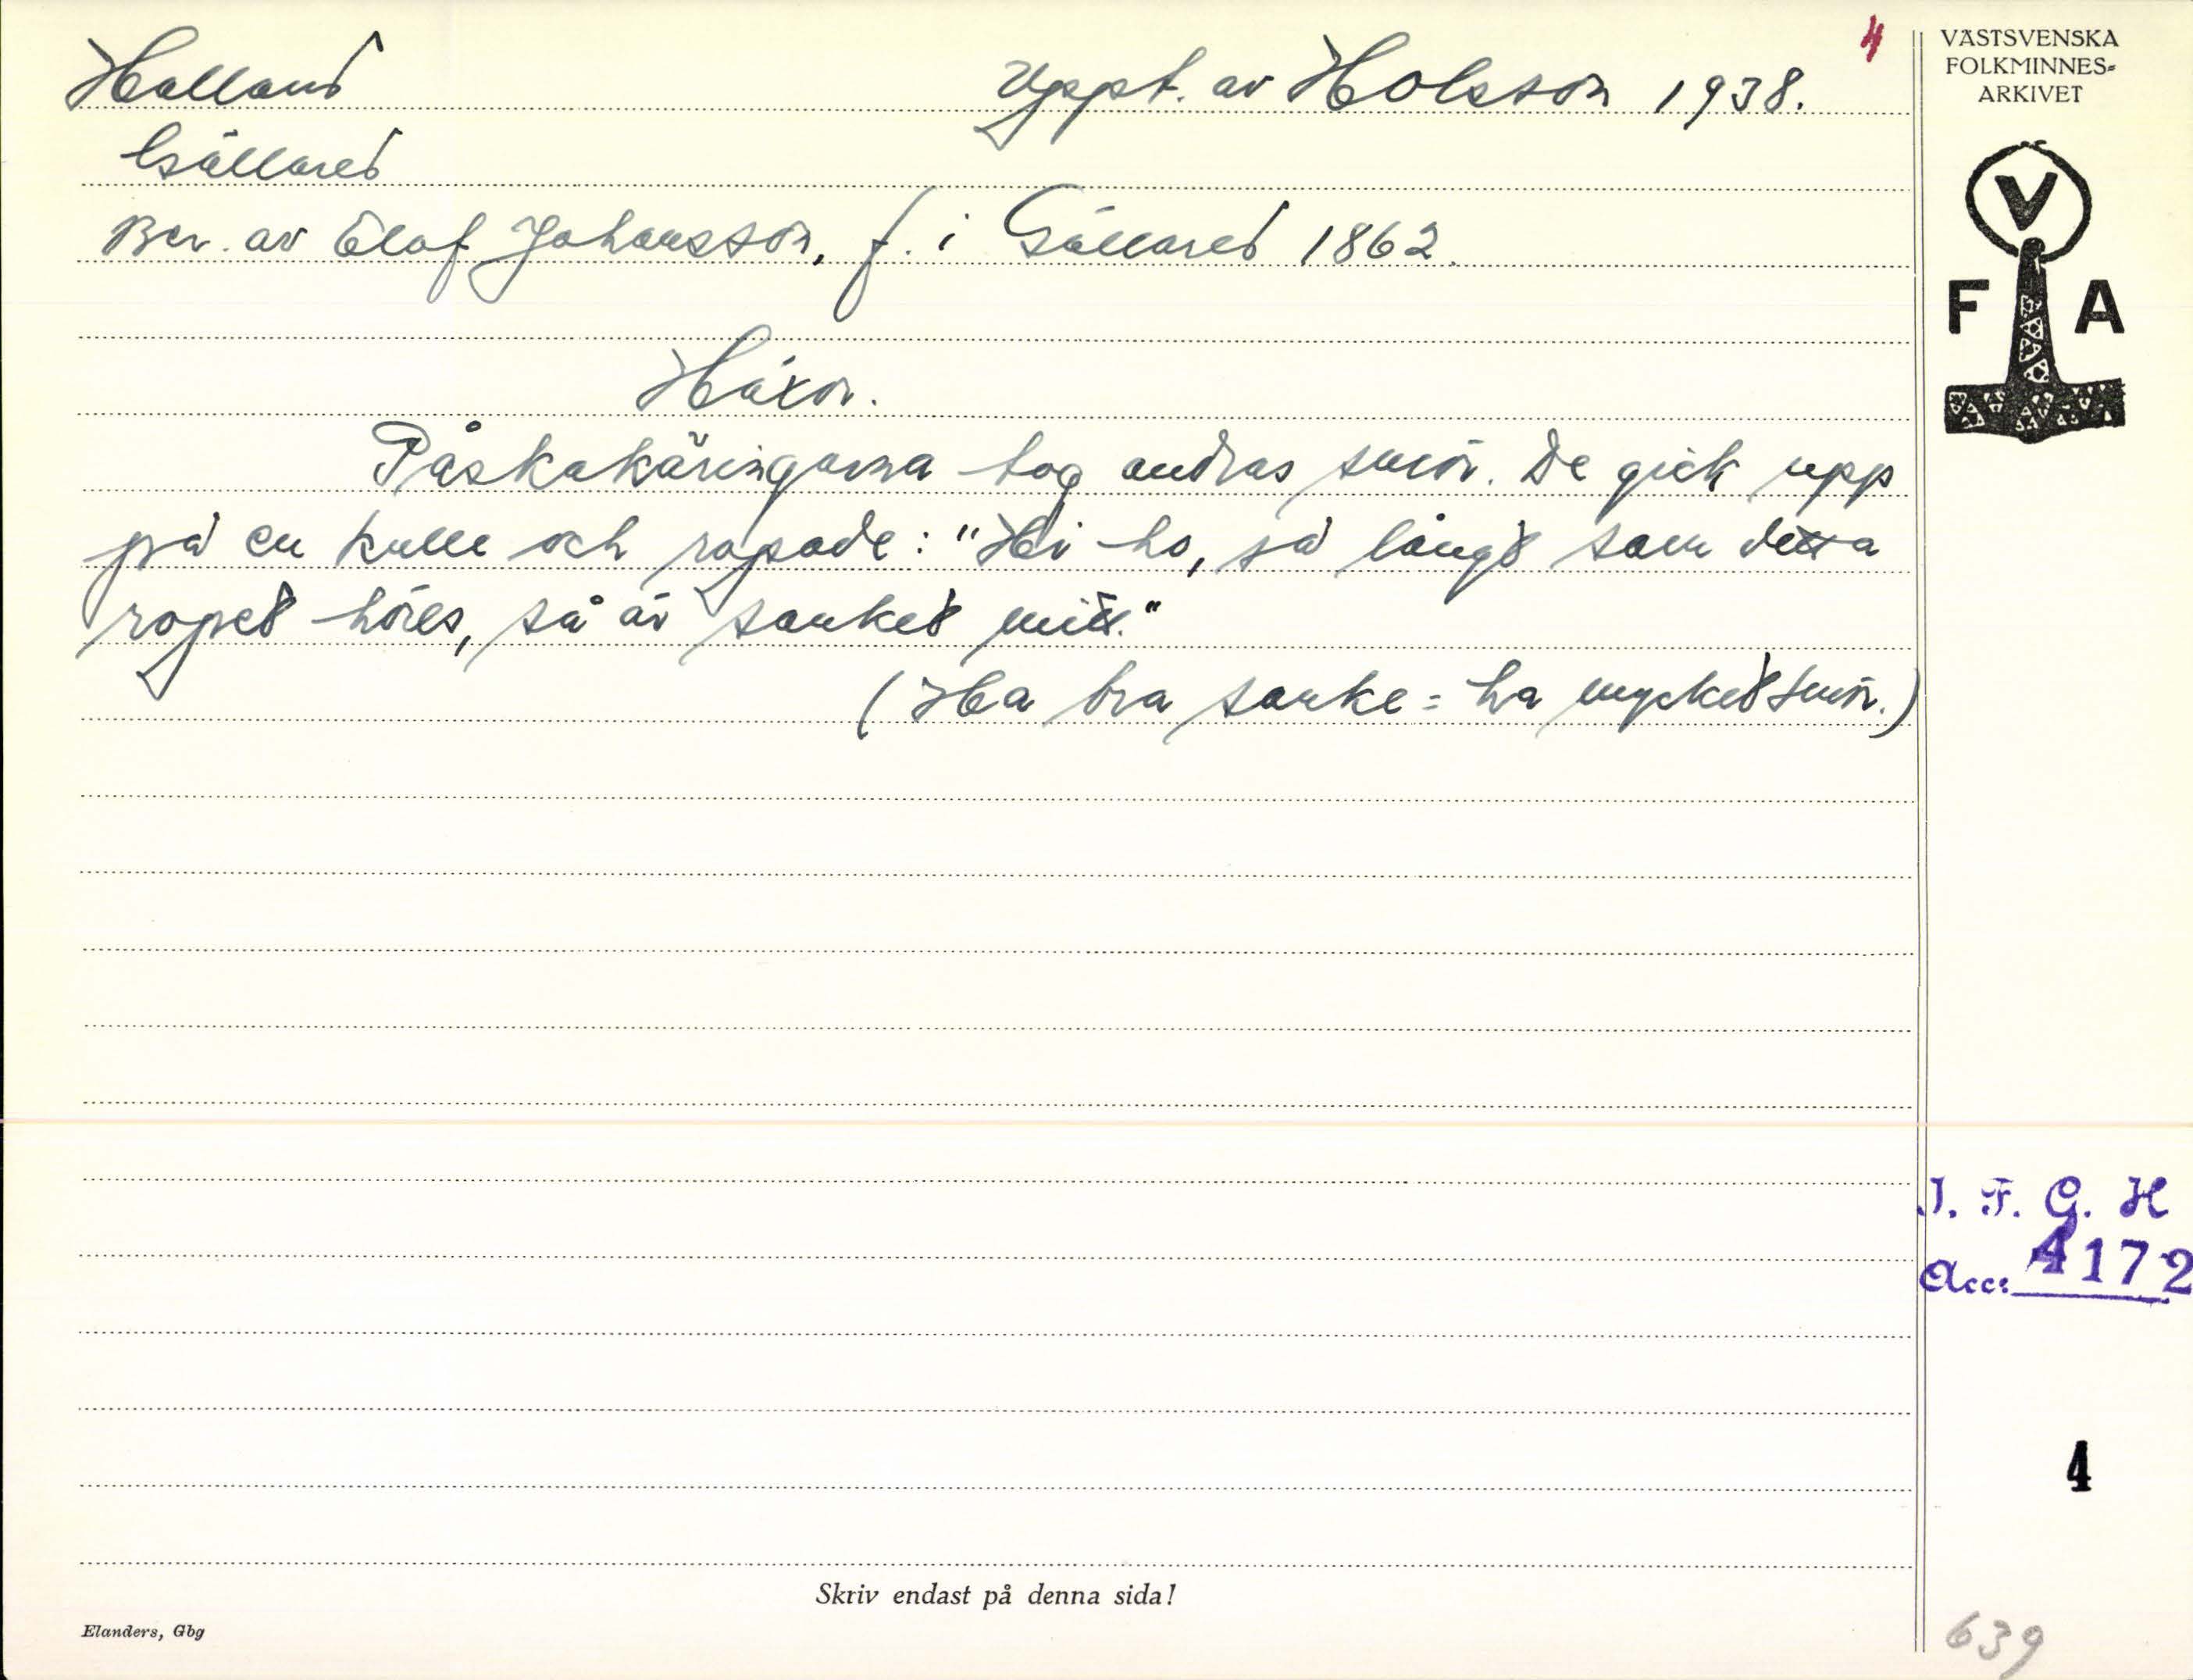 Halland
Uppt. av HOlsson 1938.
4
Gällared
Ber. av Elof Johansson, f. i Gällared 1862.
Häxor.
Påskakäringarna tog andras smör. De gick upp
på en kulle och ropade: "Hi-ho, så långt som detta
ropet höres, så är sanket mitt."
(Ha bra sanke = ha mycket smör.)
VÄSTSVENSKA
FOLKMINNES-
ARKIVET
V
F A
I. F. G. H
Acc: 4172
4
639
Skriv endast på denna sida!
Elanders, Gbg